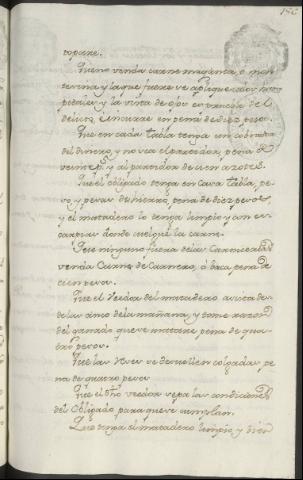 topare.
Que no venda carne
y la que fuere se aplique a los hos
pitales y la vista de ojos
delitos, é incurra en pena de diez pesos.
Que en cada tabla tenga un cobrador
del dinero, y no sea el partidor, pena de
veinte ps. y al partidor de cien azotes.
Que el obligado tenga en cada tabla, pe
so, y pesas de hierro, pena de diez pesos
y el matadero lo tenga limpio y con es
carpias donde cuelgue la carne.
Que ninguno fuera de las Carnicerias
venda Carne de Carnero, ó baca pena de
cien pesos.
Que el Veedor del matadero asista des
de las cinco de la mañana, y tome razon
del ganado que se matare pena de qua
tro pesos.
Que las Reses se desuellen colgadas pe
na de quatro pesos
Que el dho veedor sepa las condiciones
del Obligado para que se cumplan.
Que tenga el matadero limpio, y bien